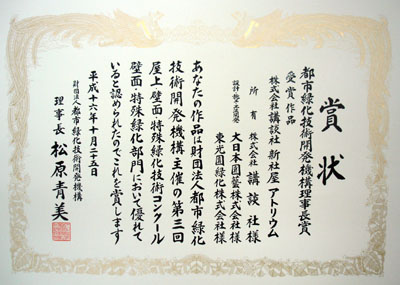 賞状
都市緑化技術開発機構理事長賞
受賞作品
株式会社講談社 新社屋 アトリウム
所有 株式会社 講談社様
大日本園藝株式会社様
東光園緑化株式会社様
あなたの作品は財団法人都市緑化
技術開発機構主催の第三回
屋上壁面・特殊緑化技術コンクール
壁面・特殊緑化部門において優れて
いると認められたのでこれを賞します
平成十六年十月二十五日
財団法人都市緑化技術開発機構
理事長 松原青美